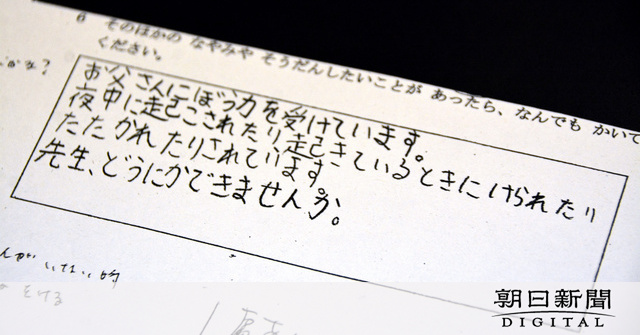 6 そのほかの なやみや そうだんしたいことが あったら、なんでも かいて
ください。
お父さんにぼう力を受けています。
夜中に起こされたり、起きているときにけられたり
たたかれたりされています。
先生、どうにかできませんか。
朝日新聞
DIGITAL